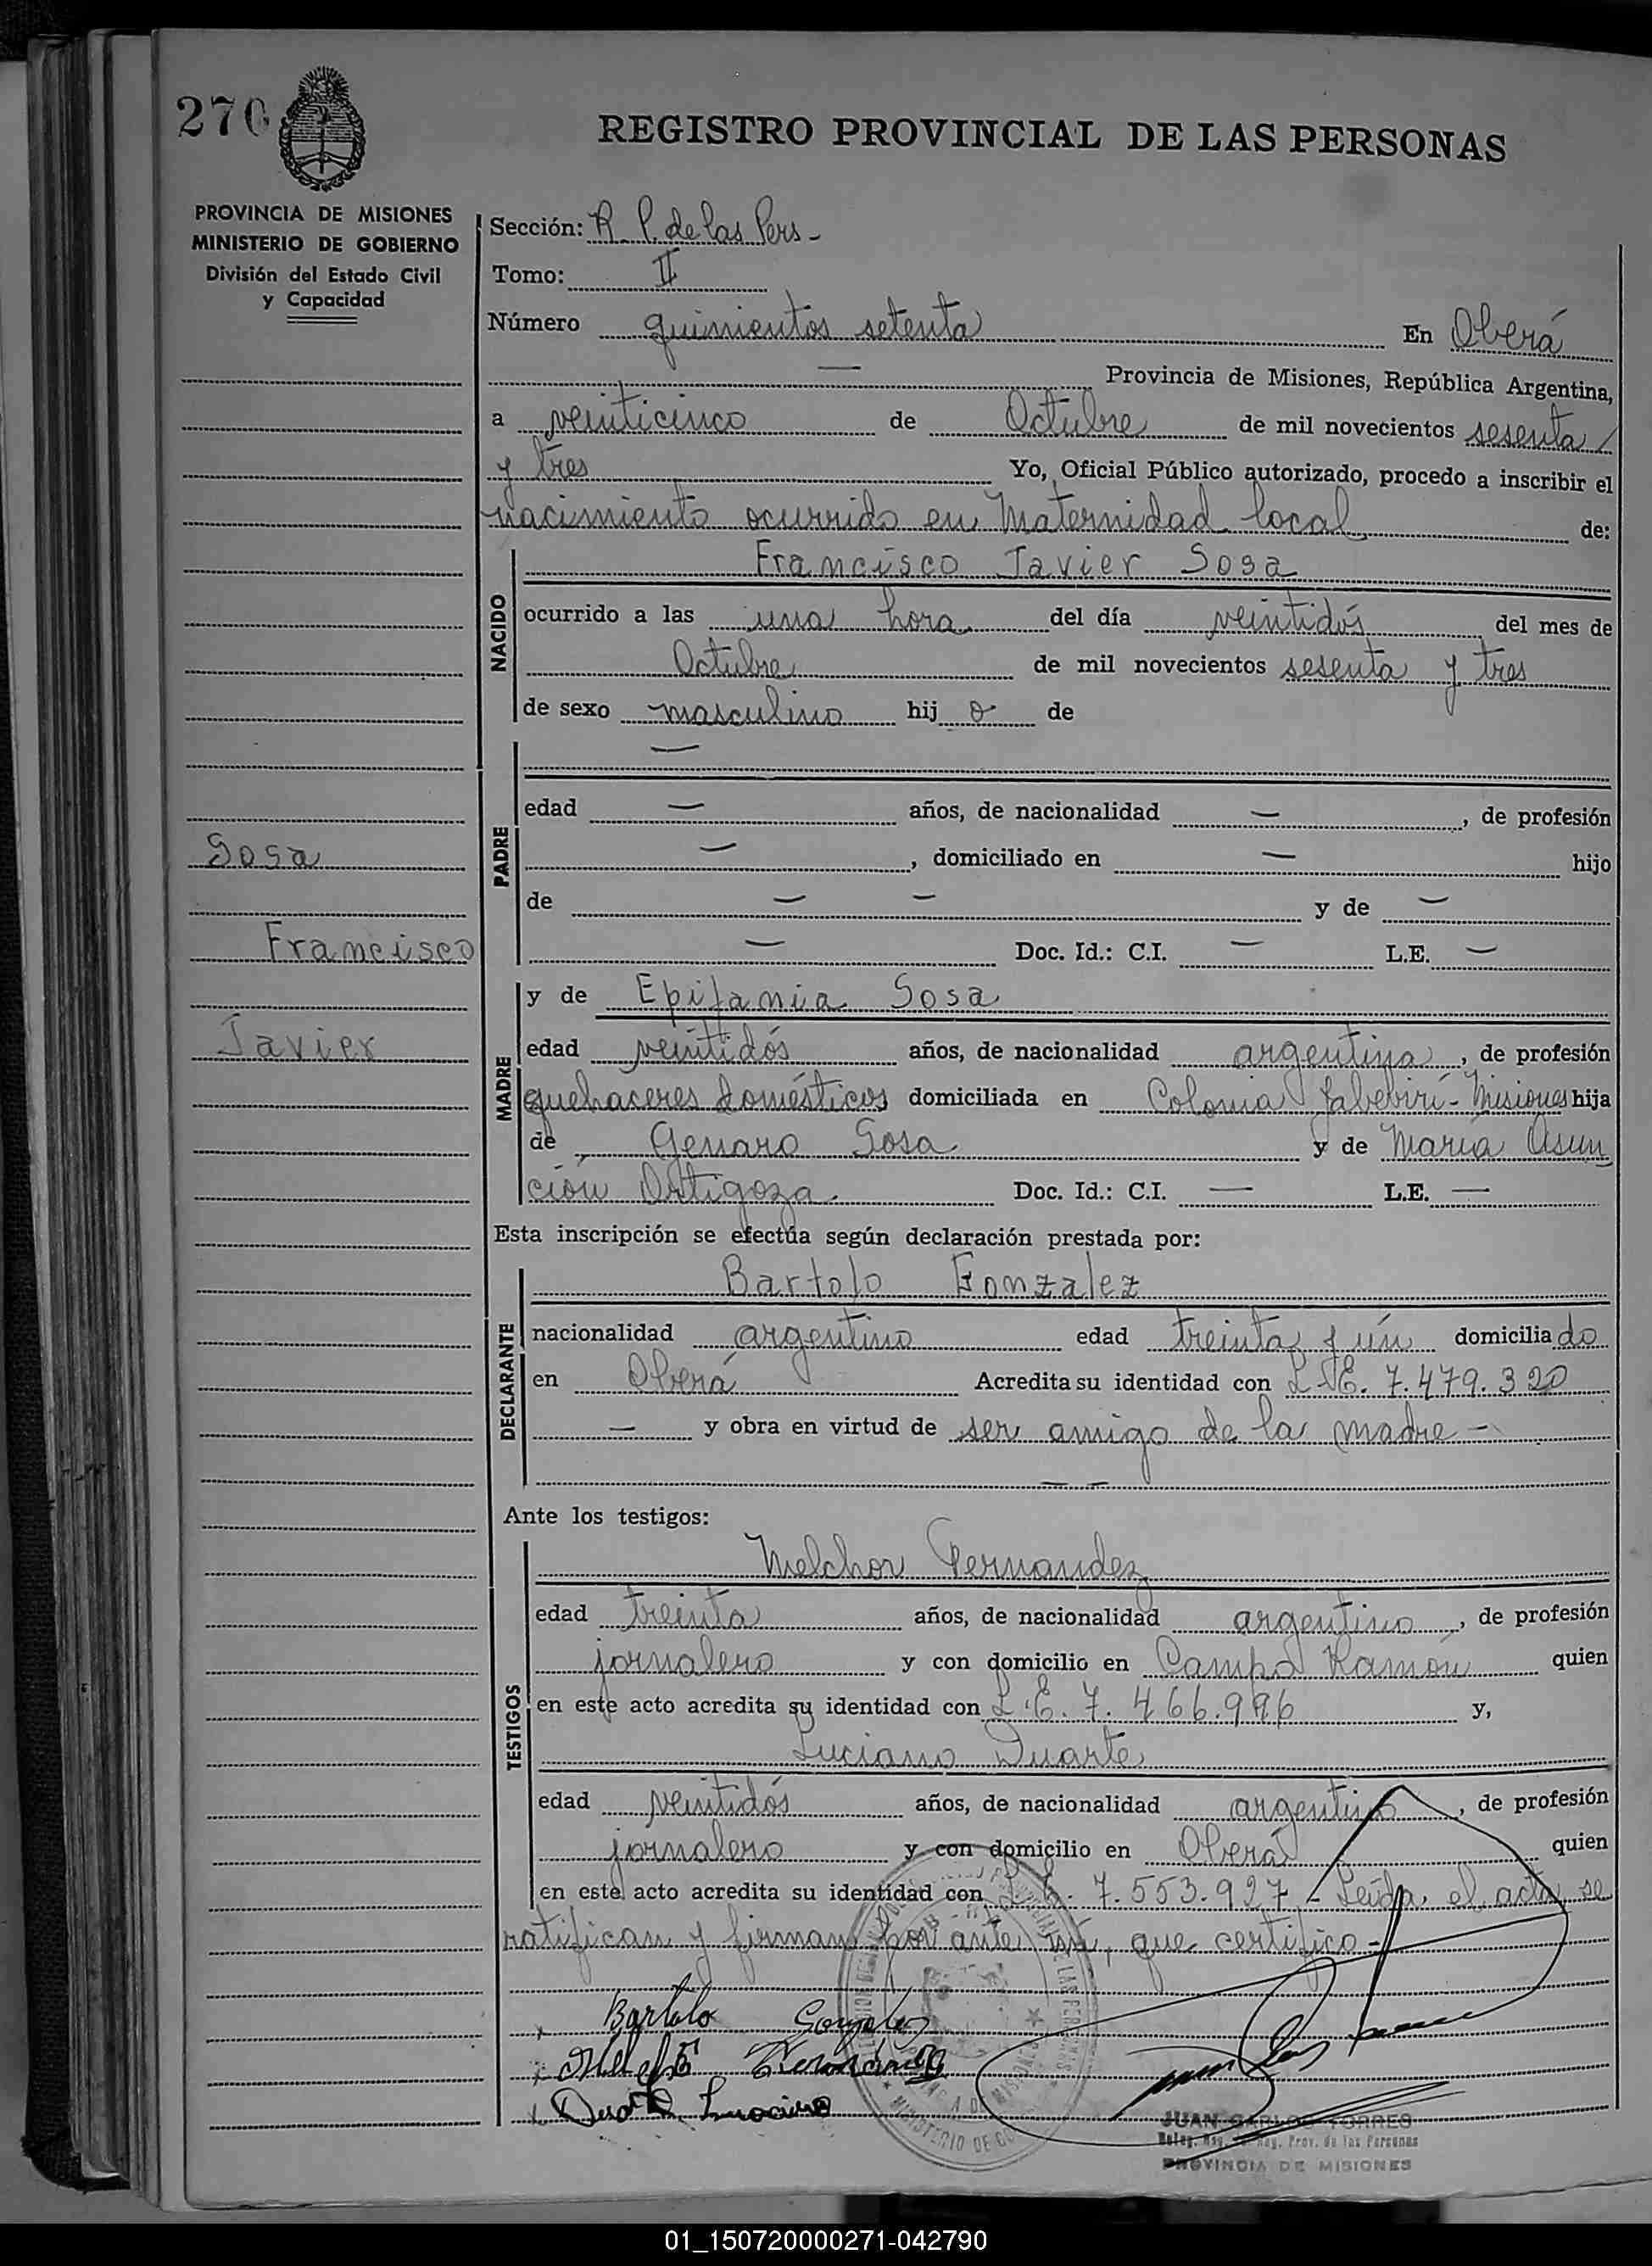 270
REGISTRO PROVINCIAL DE LAS PERSONAS
PROVINCIA DE MISIONES
MINISTERIO DE GOBIERNO
División del Estado Civil
y Capacidad
Sección: R. P. de las Pers -
Tomo: II
Número quinientos setenta En Oberá
— Provincia de Misiones, República Argentina,
a veinticinco de Octubre de mil novecientos sesenta /
y tres Yo, Oficial Público autorizado, procedo a inscribir el
nacimiento ocurrido en Maternidad local de:
NACIDO
Francisco Javier Sosa
ocurrido a las una hora del día veintidós del mes de
Octubre de mil novecientos sesenta y tres
de sexo masculino hij o de
PADRE
—
edad — años, de nacionalidad —, de profesión
—, domiciliado en — hijo
de — — y de —
— Doc. Id.: C.I. — L.E. —
Sosa
Francisco
Javier
MADRE
y de Epifania Sosa
edad veintidós años, de nacionalidad argentina, de profesión
quehaceres domésticos domiciliada en Colonia Yabebirí - Misiones hija
de Genaro Sosa y de María Asun
ción Ortigoza Doc. Id.: C.I. — L.E. —
Esta inscripción se efectúa según declaración prestada por:
DECLARANTE
Bartolo Gonzalez
nacionalidad argentino edad treinta y ún domicilia do
en Oberá Acredita su identidad con L.E. 7.479.320
— y obra en virtud de ser amigo de la madre -
— —
Ante los testigos:
TESTIGOS
Melchor Fernandez
edad treinta años, de nacionalidad argentino, de profesión
jornalero y con domicilio en Campo Ramón quien
en este acto acredita su identidad con L.E. 7.466.996 y,
Luciano Duarte
edad veintidós años, de nacionalidad argentino, de profesión
jornalero y con domicilio en Oberá quien
en este acto acredita su identidad con L.E. 7.553.927 - Leída el acta se
ratifican y firman por ante mí, que certifico -
x Bartolo Gonzalez
x Fernández
x Duarte Luciano
JUAN CARLOS TORRES
Reg. Prov. de las Personas
PROVINCIA DE MISIONES
01_150720000271-042790